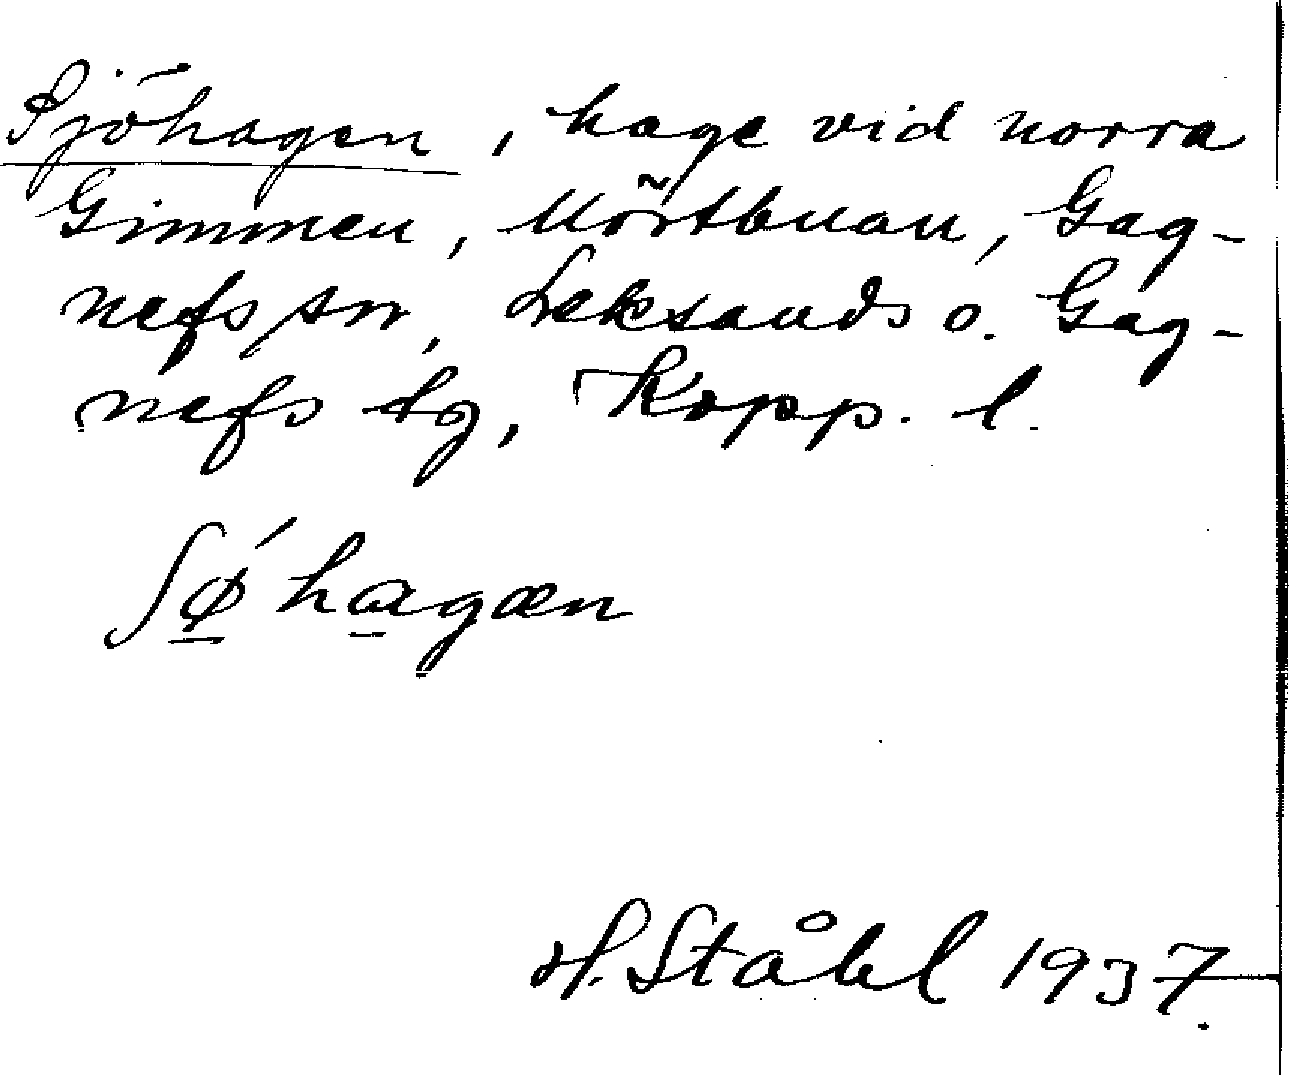 Sjöhagen, hage vid norra
Gimmen, Mörtbuan, Gag-
nefs sn, Leksands o. Gag-
nefs tg, Kopp. l.
ʃǿ̠ ha̠gæn
H. Ståhl 1937.